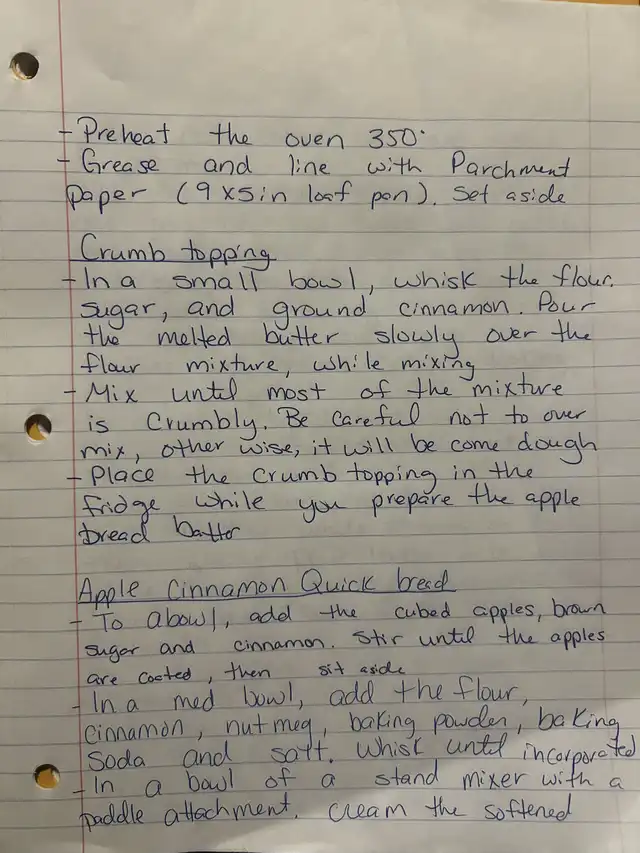 - Preheat the oven 350°
- Grease and line with Parchment
paper (9x5in loaf pan). Set aside
Crumb topping
- In a small bowl, whisk the flour,
sugar, and ground cinnamon. Pour
the melted butter slowly over the
flour mixture, while mixing
- Mix until most of the mixture
is Crumbly. Be careful not to over
mix, other wise, it will be come dough
- Place the Crumb topping in the
fridge while you prepare the apple
bread batter
Apple Cinnamon Quick bread
- To a bowl, add the cubed apples, brown
sugar and cinnamon. Stir until the apples
are coated, then sit aside
- In a med bowl, add the flour,
cinnamon, nutmeg, baking powder, baking
Soda and salt. Whisk until incorporated
- In a bowl of a stand mixer with a
paddle attachment. Cream the softened